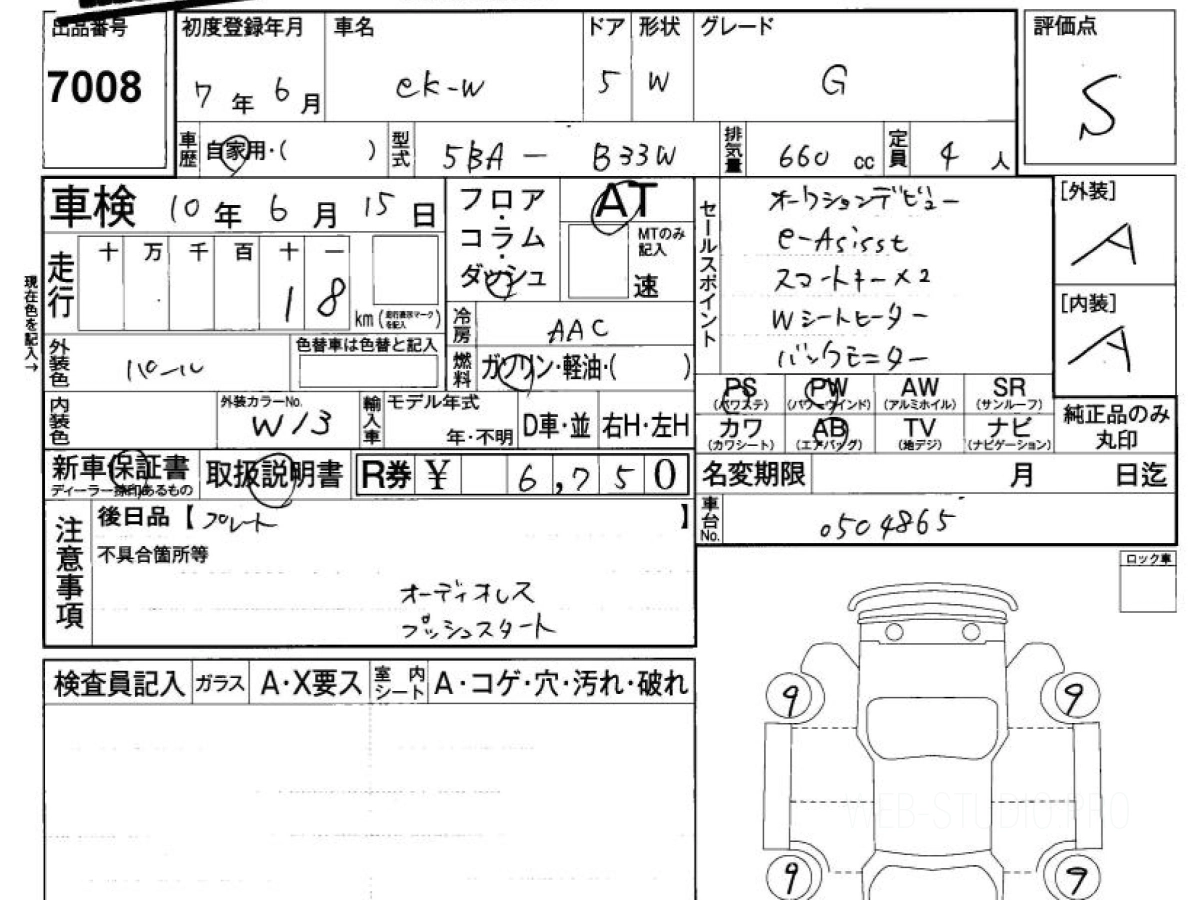 出品番号 初度登録年月 車名 ドア 形状 グレード 評価点
7008 7年 6月 ek-w 5 W G S
車歴 自家用・( ) 型式 5BA - B33W 排気量 660 cc 定員 4 人
車検 10年 6月 15日 フロア・コラム・ダッシュ AT MTのみ記入 速
セールスポイント オークションデビュー
e-Asisst
スマートキー×2
Wシートヒーター
バックモニター
[外装] A
[内装] A
現在色を記入→
走行 十 万 千 百 十 一
1 8 km (走行表示マークを記入)
冷房 AAC
外装色 パール 色替車は色替と記入 燃料 ガソリン・軽油・( )
PS (パワステ) PW (パワーウインド) AW (アルミホイル) SR (サンルーフ)
カワ (カワシート) AB (エアバッグ) TV (地デジ) ナビ (ナビゲーション)
純正品のみ丸印
内装色 外装カラーNo. W13 輸入車 モデル年式 年・不明 D車・並 右H・左H
新車保証書 ディーラー捺印あるもの 取扱説明書 R券 ¥ 6,750
名変期限 月 日迄
車台No. 0504865
注意事項 後日品【プレート 】
不具合箇所等
オーディオレス
プッシュスタート
ロック車
検査員記入 ガラス A・X要ス 室内シート A・コゲ・穴・汚れ・破れ
9 9
9 9
WEB-STUDIO.PRO